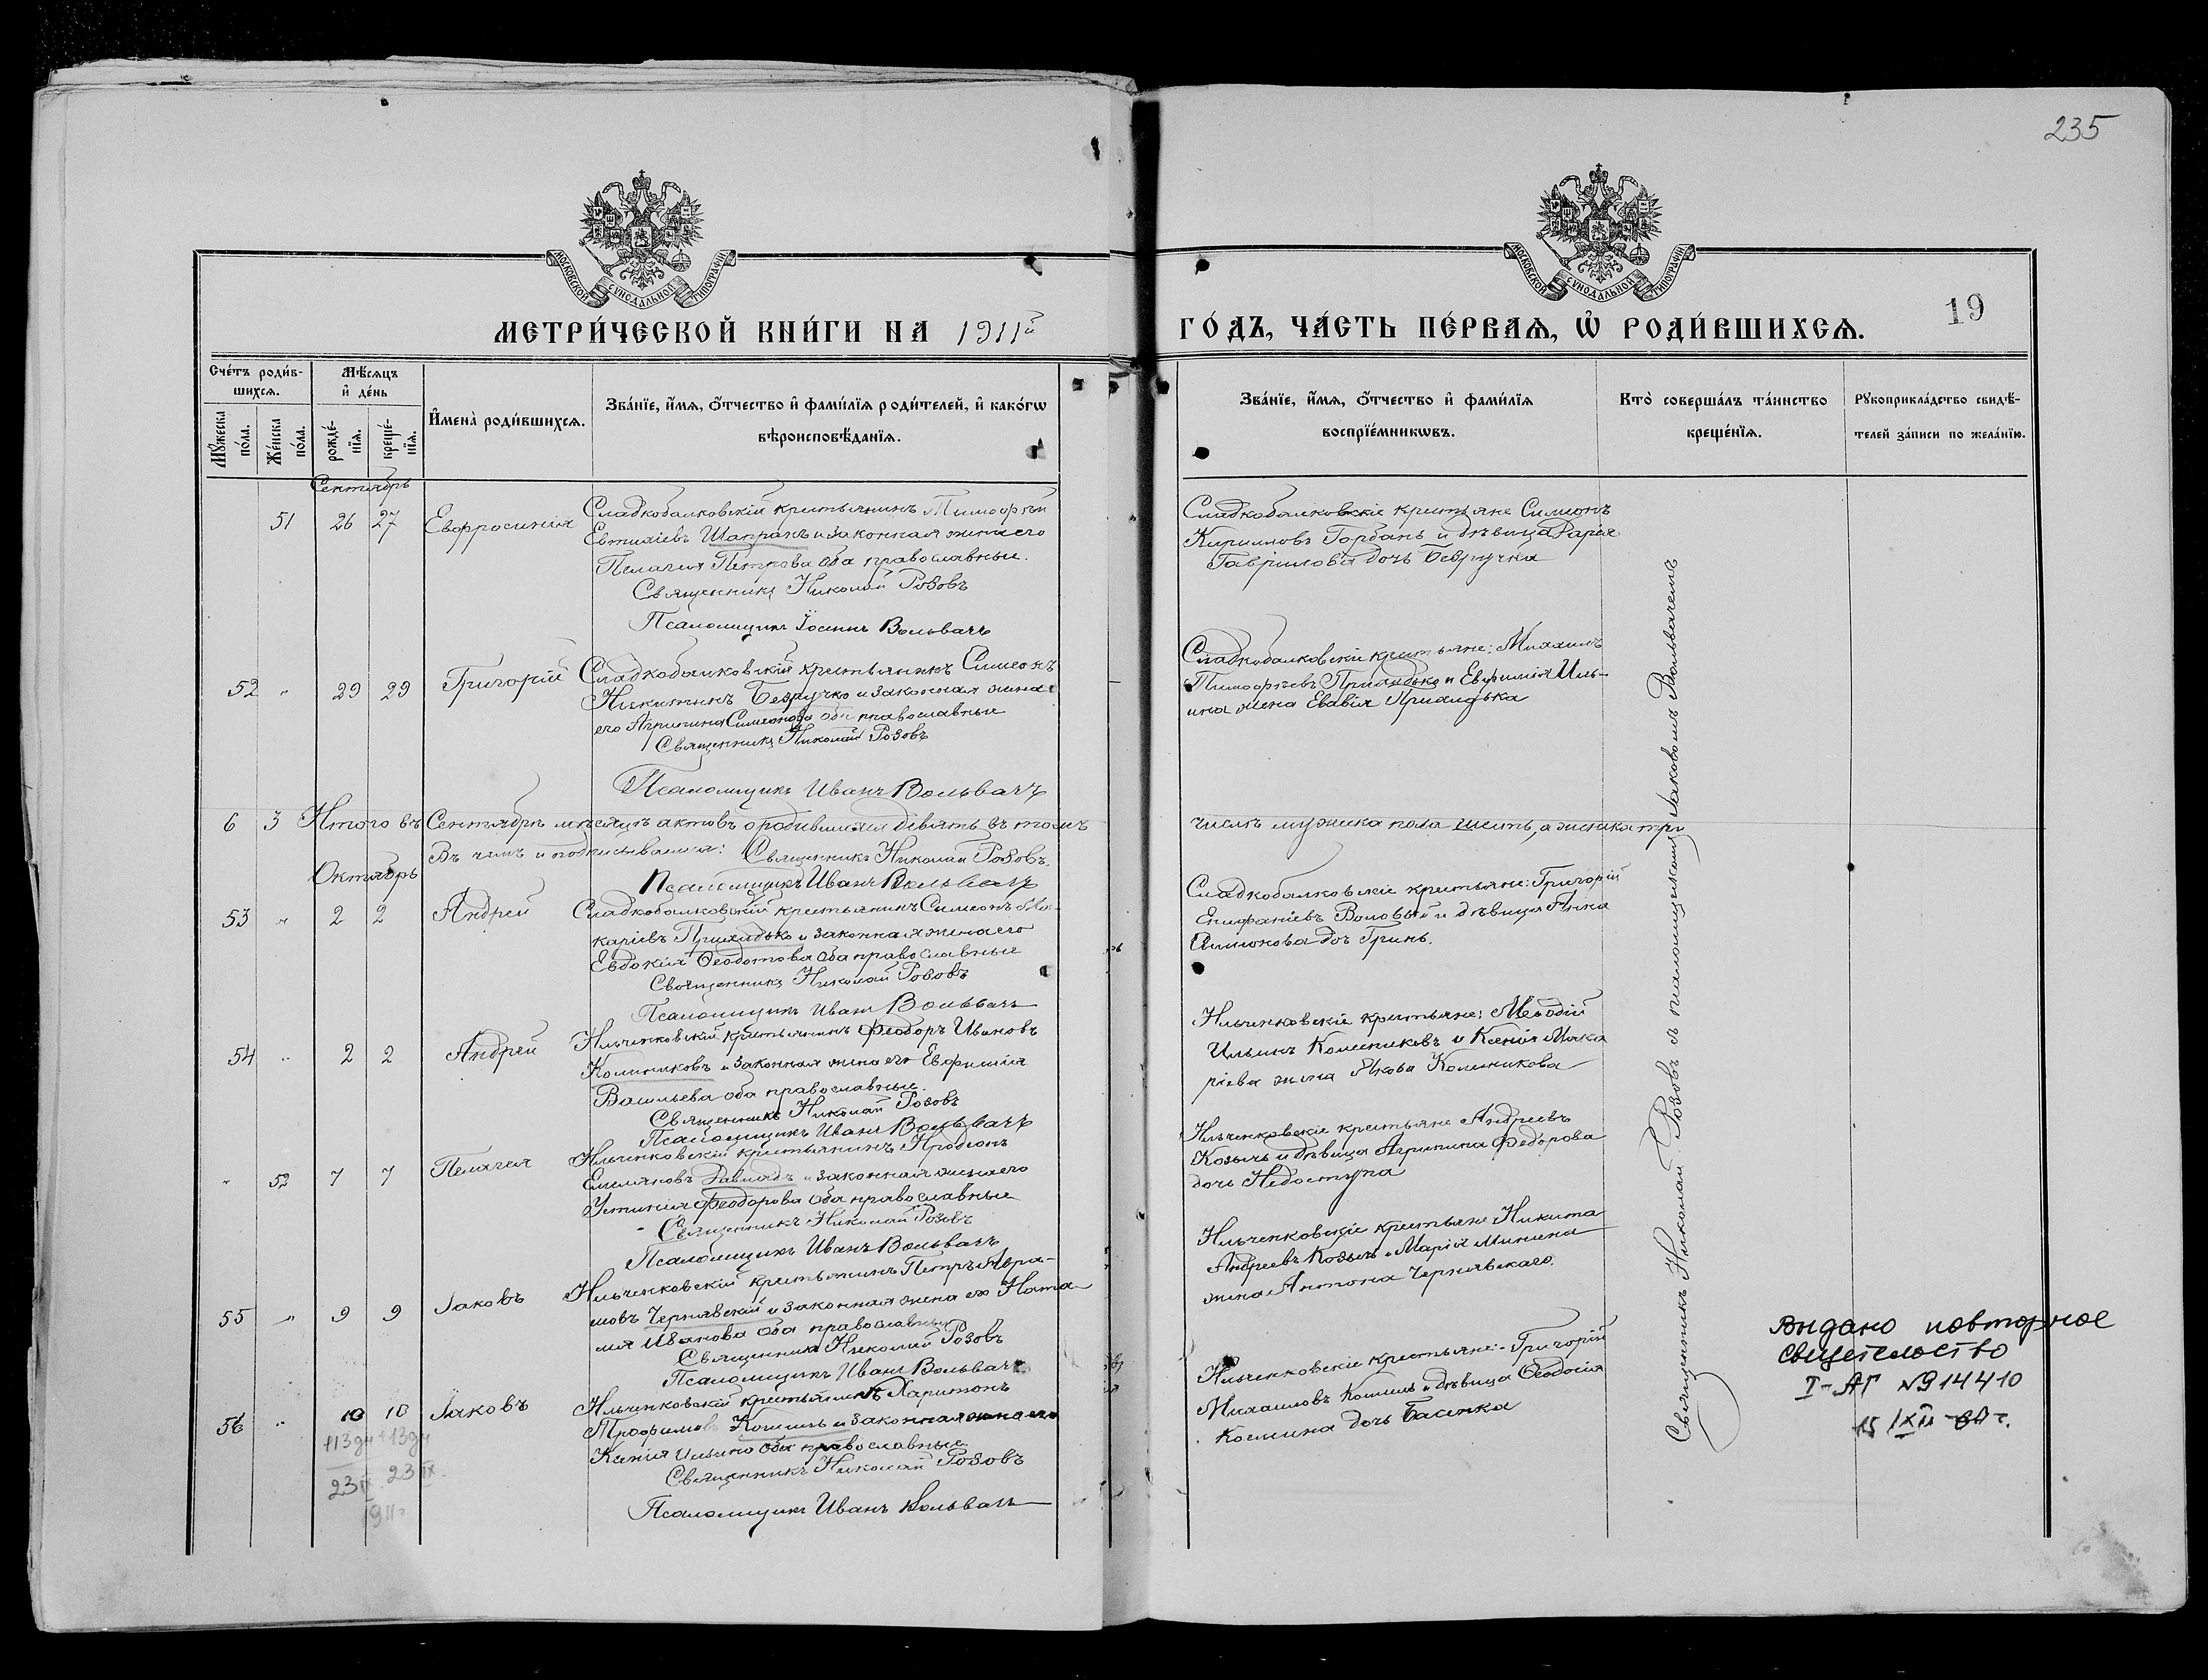 235
19
МОСКОВСКОЙ СѴНОДАЛЬНОЙ ТИПОГРАФІИ
МОСКОВСКОЙ СѴНОДАЛЬНОЙ ТИПОГРАФІИ
МЕТРИ́ЧЕСКОЙ КНИ́ГИ НА 1911й
ГО́ДЪ, ЧА́СТЬ ПЕ́РВАѦ, Ѡ҆ РОДИ́ВШИХСѦ.
Сче́тъ роди́в-
шихсѧ.
Мꙋ́жеска по́ла.
Же́нска по́ла.
Мѣ́сѧцъ
и҆ де́нь
рожде́-
нїѧ.
креще́-
нїѧ.
И҆мена̀ роди́вшихсѧ.
Зва́нїе, и҆́мѧ, ѻ҆́тчество и҆ фами́лїѧ роди́телей, и҆ како́гѡ
вѣроисповѣ́данїѧ.
Зва́нїе, и҆́мѧ, ѻ҆́тчество и҆ фами́лїѧ
воспрїе́мникѡвъ.
Кто̀ соверша́лъ та́инство
креще́нїѧ.
Рꙋкоприкла́дство свидѣ́-
телей за́писи по жела́нїю.
Сентябрь
51 26 27 Евфросинія
Сладкобалковскій крестьянинъ Тимофѣй
Евтихіевъ Шапранъ и законная жена его
Пелагея Петрова оба православные.
Священникъ Николай Розовъ
Псаломщикъ Іоаннъ Вольвачъ
Сладкобалковскіе крестьяне Симеонъ
Кирилловъ Горбань и дѣвица Дарія
Гавріилова дочь Безручка
52 " 29 29 Григорій
Сладкобалковскій крестьянинъ Симеонъ
Никитинъ Безручко и законная жена
его Агрипина Симеонова оба православные
Священникъ Николай Розовъ
Псаломщикъ Иванъ Вольвачъ
Сладкобалковскіе крестьяне: Михаилъ
Тимофѣевъ Прихидько и Евфимія Иль-
ина жена Прихидька
6 3 Итого въ Сентябрѣ мѣсяцѣ актовъ о родившихся девять въ томъ
числѣ мужеска пола шесть, а женска три
Въ чемъ и подписываемся: Священникъ Николай Розовъ.
Псаломщикъ Иванъ Вольвачъ
Октябрь
53 " 2 2 Андрей
Сладкобалковскій крестьянинъ Симеонъ Ма-
каріевъ Прихидько и законная жена его
Евдокія Ѳеодотова оба православные
Священникъ Николай Розовъ
Псаломщикъ Иванъ Вольвачъ
Сладкобалковскіе крестьяне: Григорій
Епифаніевъ Воловый и дѣвица Анна
Симеонова доч Гринь.
54 " 2 2 Андрей
Ильченковскій крестьянинъ Феодоръ Ивановъ
Колениковъ и законная жена его Евфимія
Васильева оба православные.
Священникъ Николай Розовъ
Псаломщикъ Иванъ Вольвачъ
Ильченковскіе крестьяне: Меѳодій
Ильинъ Колениковъ и Ксенія Мака
ріева жена Якова Коленикова
" 52 7 7 Пелагея
Ильченковскій крестьянинъ Иродіонъ
Емеліановъ и законная жена его
Устинія Феодорова оба православные
Священникъ Николай Розовъ
Псаломщикъ Иванъ Вольвачъ
Ильченковскіе крестьяне Андреевъ
Козычъ и дѣвица Агрипина Федорова
дочь Недоступа
55 " 9 9 Іаковъ
Ильченковскій крестьянинъ Петръ Авра-
мовъ Чернявскій и законная жена его Ната
лія Иванова оба православные
Священникъ Николай Розовъ
Псаломщикъ Иванъ Вольвачъ
Ильченковскіе крестьяне Никита
Андреевъ Козычъ и Марія Минина
жена Антона Чернявскаго.
56 " 10 10 Іаковъ
+13дн +13дн
23 IX. 23 IX.
1911г
Ильченковскій крестьянинъ Харитонъ
Трофимовъ Кошиль и законная жена его
Ксенія Ильина оба православные
Священникъ Николай Розовъ
Псаломщикъ Иванъ Вольвачъ
Ильченковскіе крестьяне: Григорій
Михаиловъ Кошиль и дѣвица Ѳеодосія
Космина дочь Басенка
Священникъ Николай Розовъ съ псаломщикомъ Іаковомъ Вольвачемъ
Выдано повторное
свидетельство
I-АГ №914410
15/XII